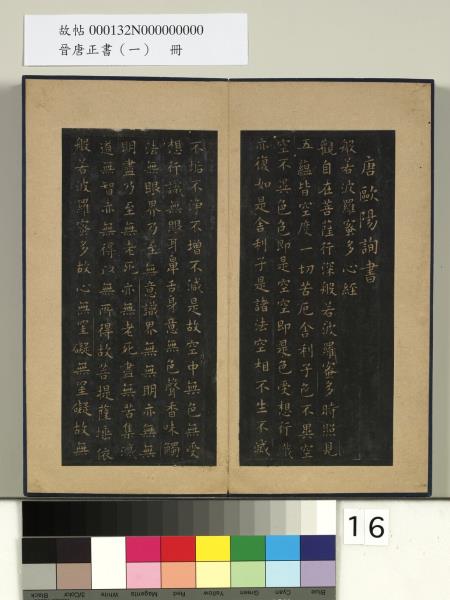 故帖 000132N000000000
晉唐正書（一） 冊
唐歐陽詢書
般若波羅蜜多心經
觀自在菩薩行深般若波羅蜜多時照見
五蘊皆空度一切苦厄舍利子色不異空
空不異色色即是空空即是色受想行識
亦復如是舍利子是諸法空相不生不滅
不垢不淨不增不減是故空中無色無受
想行識無眼耳鼻舌身意無色聲香味觸
法無眼界乃至無意識界無無明亦無無
明盡乃至無老死亦無老死盡無苦集滅
道無智亦無得以無所得故菩提薩埵依
般若波羅蜜多故心無罣礙無罣礙故無
16
Black
3/Color
White
Magenta
Red
Yellow
Green
Cyan
Blue